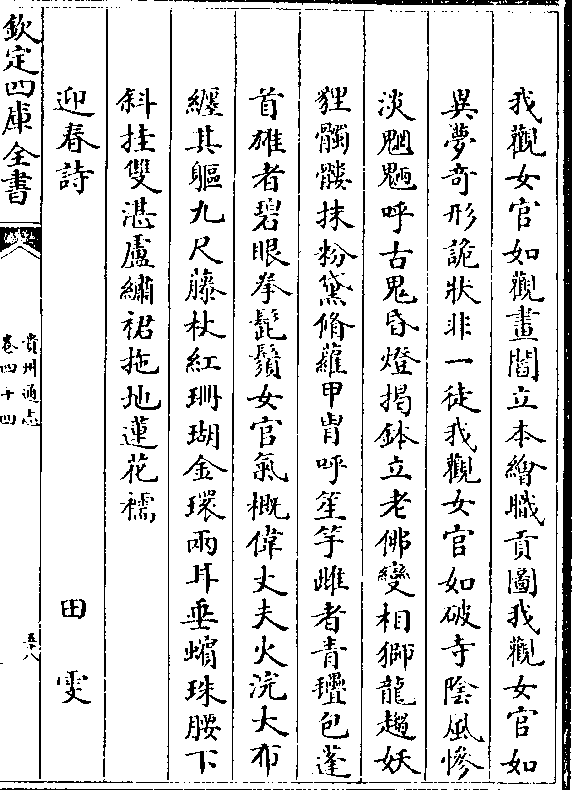 我觀女官如觀畫閻立本繪職貢圖我觀女官如
異夢奇形詭狀非一徒我觀女官如破寺陰風慘
淡魍魎呼古鬼昏燈揭鉢立老佛變相獅龍趨妖
狸髑髏抹粉黛脩蘿甲胄呼笙竽雌者青氊包蓬
首雄者碧眼拳髭鬚女官氣概偉丈夫火浣大布
纏其軀九尺藤杖紅珊瑚金環兩耳垂蠙珠腰下
斜挂雙湛盧繡裙拖地蓮花襦
迎春詩 田雯
欽定四庫全書
貴州通志
卷四十四
五八